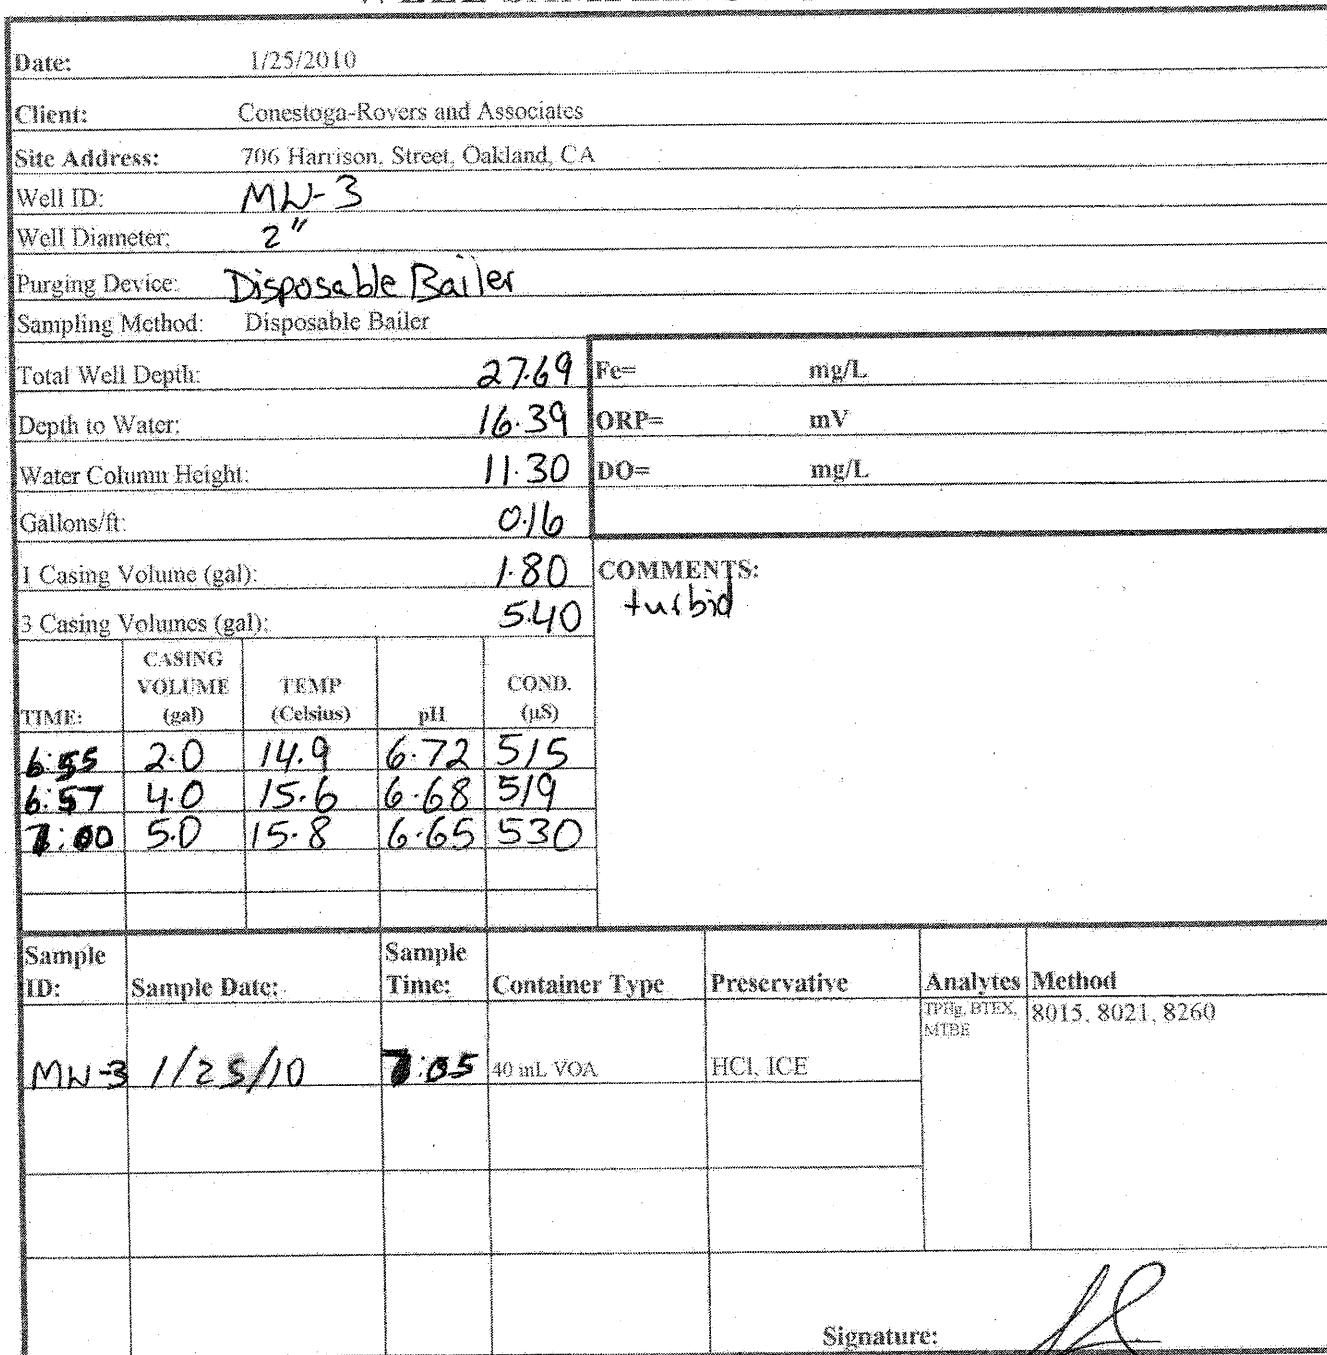 Date: 1/25/2010
Client: Conestoga-Rovers and Associates
Site Address: 706 Harrison, Street, Oakland, CA
Well ID: MW-3
Well Diameter: 2"
Purging Device: Disposable Bailer
Sampling Method: Disposable Bailer
Total Well Depth: 27.69 Fe= mg/L
Depth to Water: 16.39 ORP= mV
Water Column Height: 11.30 DO= mg/L
Gallons/ft: 0.16
1 Casing Volume (gal): 1.80 COMMENTS:
turbid
3 Casing Volumes (gal): 5.40
TIME: CASING VOLUME (gal) TEMP (Celsius) pH COND. (µS)
6:55 2.0 14.9 6.72 515
6:57 4.0 15.6 6.68 519
7:00 5.0 15.8 6.65 530
Sample ID: Sample Date: Sample Time: Container Type Preservative Analytes Method
MW-3 1/25/10 7:05 40 mL VOA HCl, ICE TPHg, BTEX, MTBE 8015, 8021, 8260
Signature: